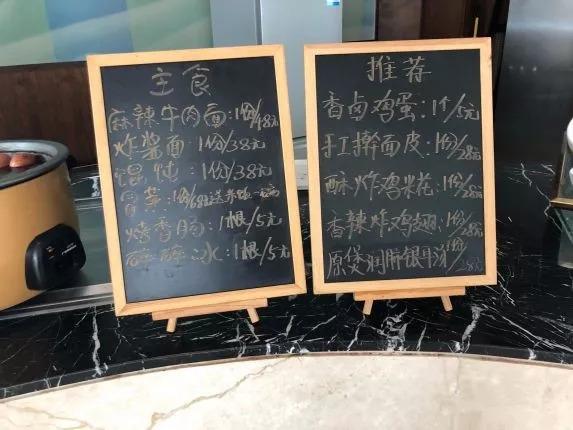 主食
麻辣牛肉面:1份/48元
炸酱面:1份/38元
馄饨:1份/38元
冒菜:1份/68元送米饭一碗
烤香肠:1根/5元
1根/5元
推荐
香卤鸡蛋:1个/5元
手工擀面皮:1份/28元
酥炸鸡米花:1份/28元
香辣炸鸡翅:1份/28元
原煲润肺银耳汤1份/28元